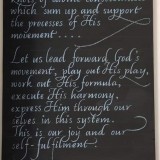 which sum up and support
the processes of His
movement....
Let us lead forward God's
movement, play out His play,
work out His formula,
execute His harmony,
express Him through our
selves in this system.
This is our joy and our
self-fulfilment.